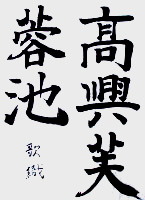 高興芙
蓉池
歌織